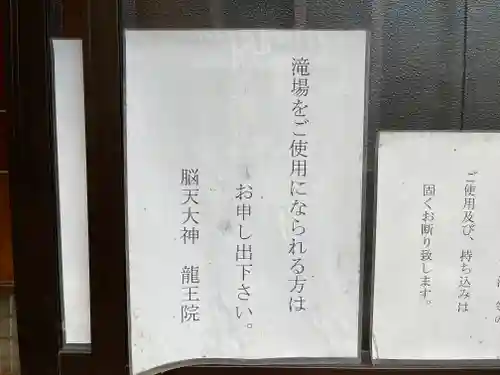 滝場をご使用になられる方は
お申し出下さい。
脳天大神　龍王院
ご使用及び、持ち込みは
固くお断り致します。